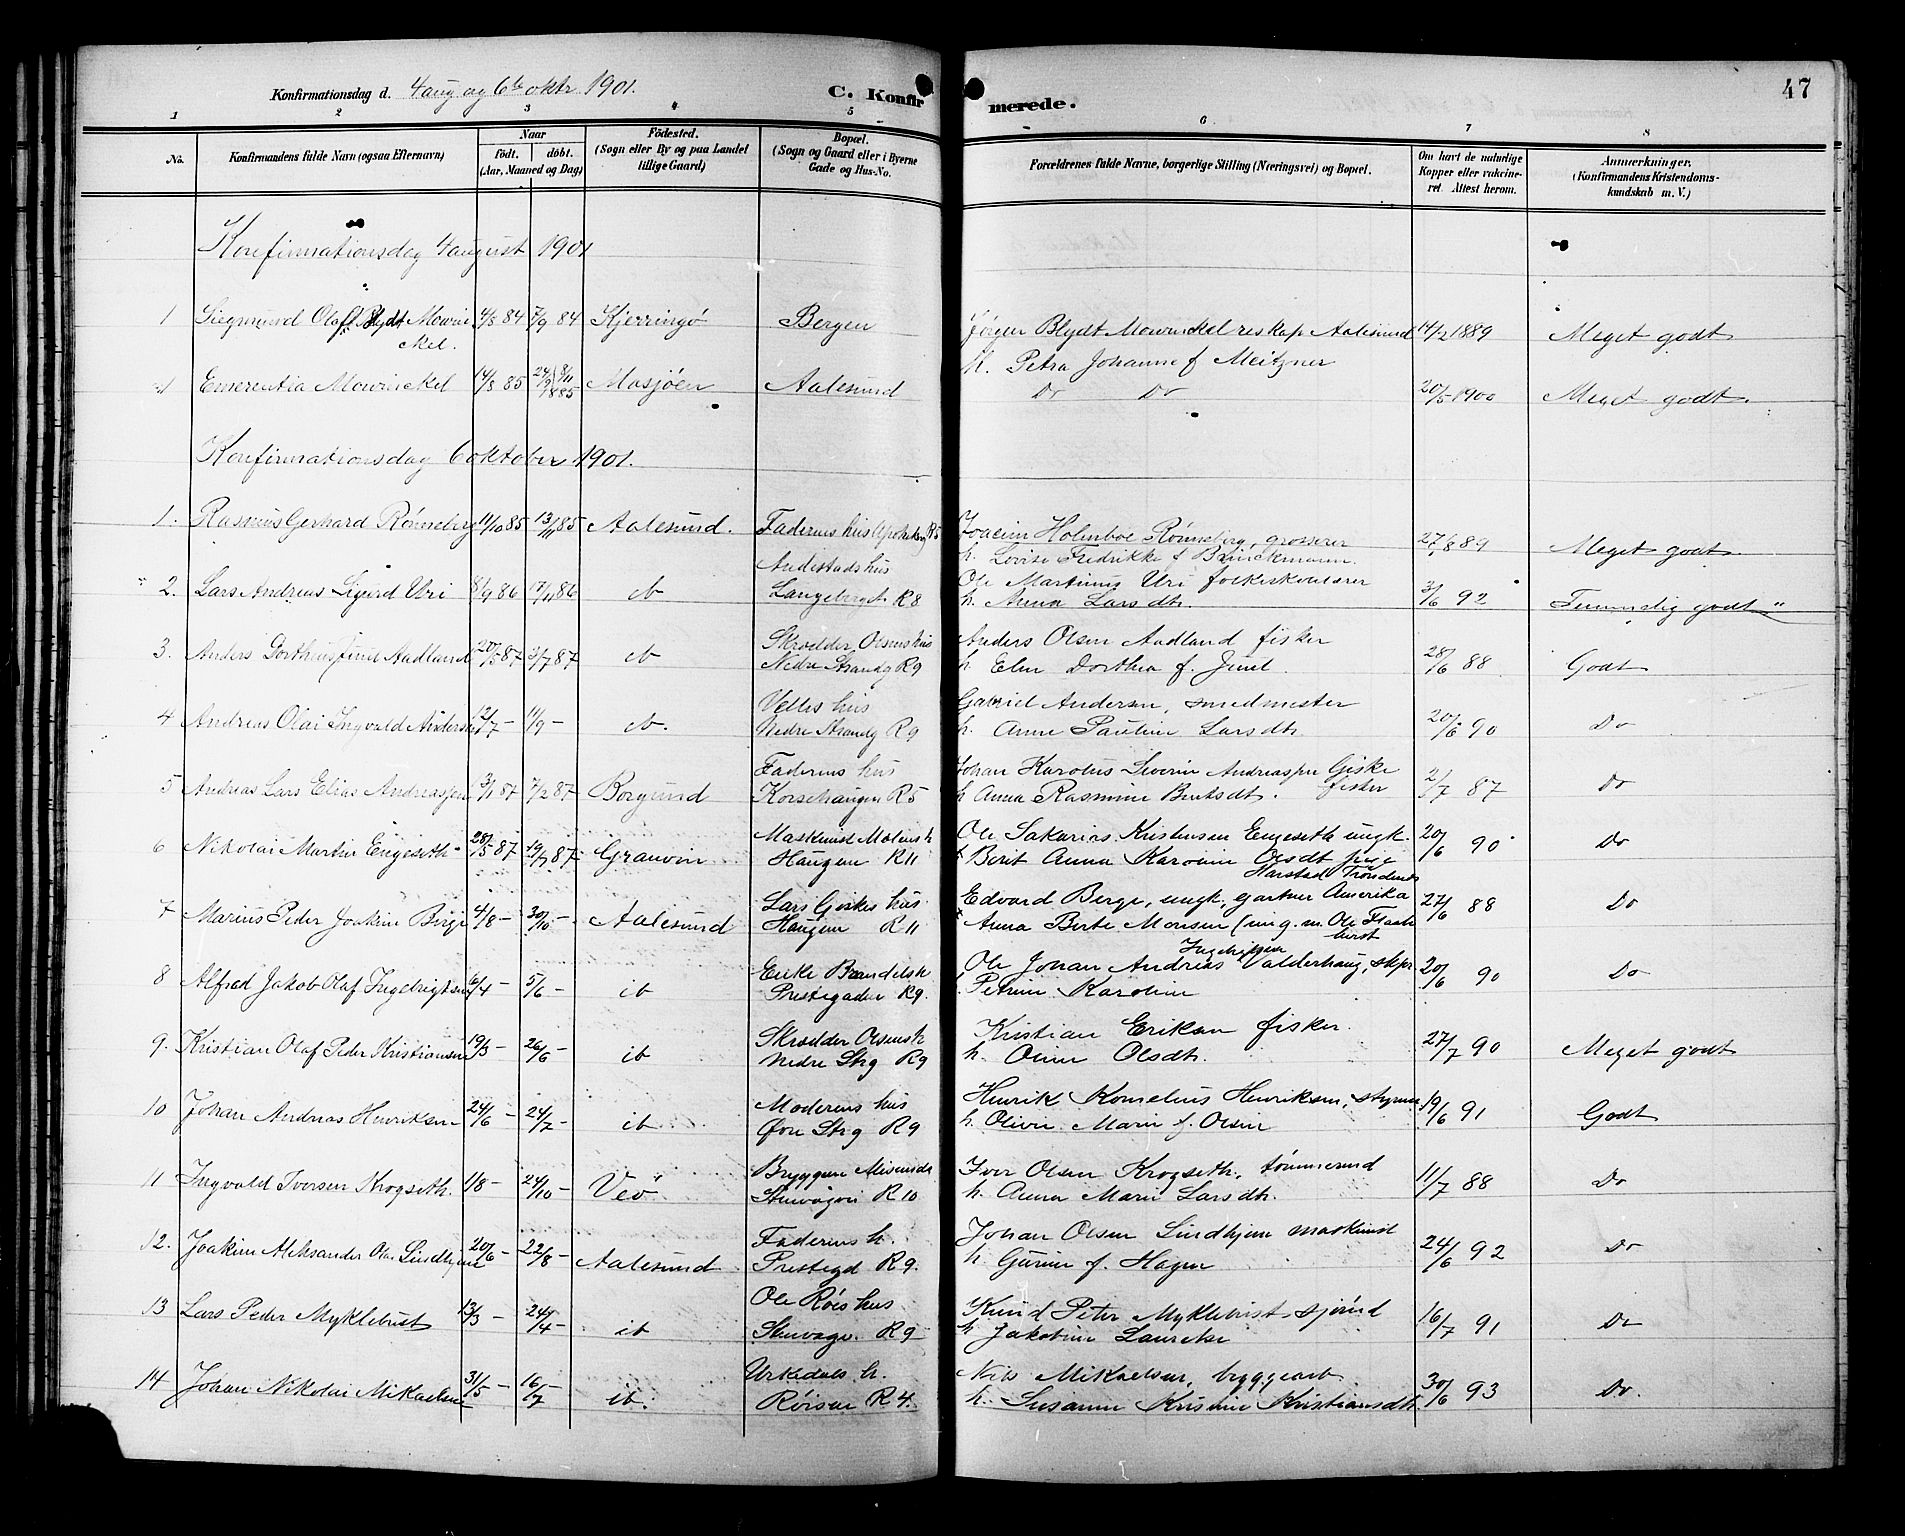 47
Konfirmationsdag d. 4 aug og 6te oktr. 1901.
C. Konfirmerede.
1 2 3 4 5 6 7 8
No.
Konfirmandens fulde Navn (ogsaa Efternavn)
Naar
født. døbt.
(Aar, Maaned og Dag)
Fødested.
(Sogn eller By og paa Landet
tillige Gaard)
Bopæl.
(Sogn og Gaard eller i Byerne
Gade og Hus-No.
Forældrenes fulde Navne, borgerlige Stilling (Næringsvei) og Bopæl.
Om havt de naturlige
Kopper eller vakcine-
ret. Attest herom.
Anmerkninger.
(Konfirmandens Kristendoms-
kundskab m. V.)
Konfirmationsdag 4 august 1901
1 Siegmund Olaf Blydt Mowinckel. 4/8 84 7/9 84 Kjerringø Bergen Jørgen Blydt Mowinckel reskap Aalesund 14/2 1889 Meget godt
H. Petra Johanne f Meitzner
Emerentia Mowinckel 14/8 85 Mosjøen Aalesund Do Do 20/5 1900 Meget godt.
Konfirmationsdag 6 oktober 1901.
1. Rasmus Gerhard Rønneberg 11/10 85 13/11 85 Aalesund. Faderens hus R5 Joacim Holmboe Rønneberg, grosserer 27/8 89 Meget godt.
h. Lovise Fredrikke f Brinckmann
2. Lars Andreas Sigurd Uri 8/9 86 17/11 86 ib Andestads hus Ole Martinus Uri 3/6 92 Temmelig godt
Langeberget R8 h. Anna Larsdtr.
3. Anders Dortheus Juul Aadland 20/5 87 3/7 87 ib Skrædder Olsens hus Anders Olsen Aadland fisker 28/6 88 Godt
Nedre Strandg R9 h Elen Dorthea f. Juul
4 Andreas Olai Ingvald Andersen 12/7 - 11/9 - ib. Velles hus Gabriel Andersen, smedmester 20/6 90 Do
Nedre Strandg R9 h. Anne Pauline Larsdtr
5 Andreas Lars Elias Andreassen 3/1 87 7/2 87 Borgund Faderens hus Johan Karolus Severin Andreassen Giske fisker 2/7 87 Do
Korsehaugen R5 h Anna Rasmine Berntsdt.
6 Nikolai Martin Engeseth 28/5 87 19/7 87 Granvin Maskinist Molvers h Ole Sakarias Kristensen Engeseth ungk. 20/6 90 Do
Haugen R11 Berit Anna Karoline Olsdt pige
Harstad Trondenes
7 Marius Peder Joakim Berge 4/8 - 30/10 - Aalesund Lars Giskes hus Edvard Berge, ungk, gartner Amerika 27/6 88 Do
Haugen R11 Anna Berte Monsen
8 Alfred Jakob Olaf Ingebrigtsen 6/4 - 5/6 - ib Enke Brandels h Ole Johan Andreas Ingebrigtsen Valderhaug, skpr 20/6 90 Do
Prestegaden R9. Petrine Karoline
9. Kristian Olaf Peder Kristiansen 19/5 - 26/6 - ib Skrædder Olsens h Kristian Eriksen fisker. 27/7 90 Meget godt
Nedre Strg R9 h. Oline Olsdtr.
10 Johan Andreas Henriksen 24/6 - 24/7 - ib Moderens hus Henrik Kornelius Henriksen, styrm 19/6 91 Godt
Øvre Strg R9 h. Olive Marie f. Olsen
11 Ingvald Iversen Krogseth. 1/8 - 24/10 - Veø Bryggem Misunds Iver Olsen Krogseth, tømmermd 11/7 88 Do
Stenvaagen R10 h. Anna Marie Larsdtr.
12. Joakim Aleksander Ola Lindhjem 20/6 - 22/8 - Aalesund Faderens h. Johan Olsen Lindhjem maskinist 24/6 92 Do
Prestegd R9. h. Gurine f. Hagen
13 Lars Peder Myklebust 13/3 - 24/4 - ib Ole Røis hus Knud Peter Myklebust, sjømd 16/7 91 Do
Stenvaag. R9 h. Jakobine Laurelse
14 Johan Nikolai Mikaelsen 31/5 - 16/7 - ib. Urkedals h. Nils Mikaelsen, byggearb. 30/6 93 Do.
Røisen R4. h. Susanne Kristine Kristiansdtr.